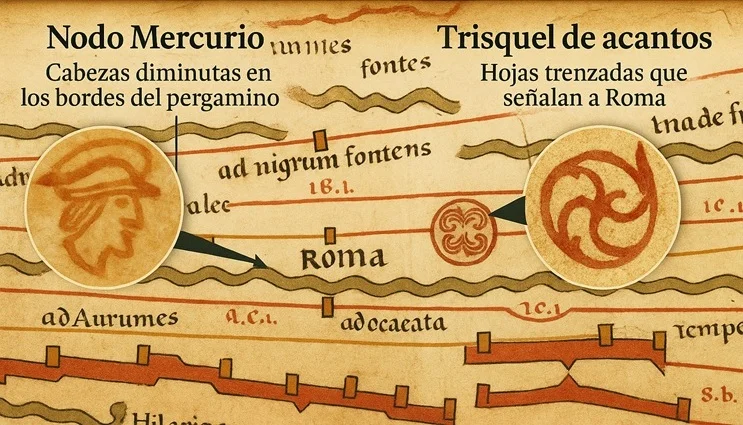 Nodo Mercurio
Cabezas diminutas en
los bordes del pergamino
Trisquel de acantos
Hojas trenzadas que
señalan a Roma
fontes
ad nigrum fontens
18.1.
alec
Roma
1c.1.
ad Aurumes
a.c.1.
adocaeata
1c.1.
Tempe
s.b.